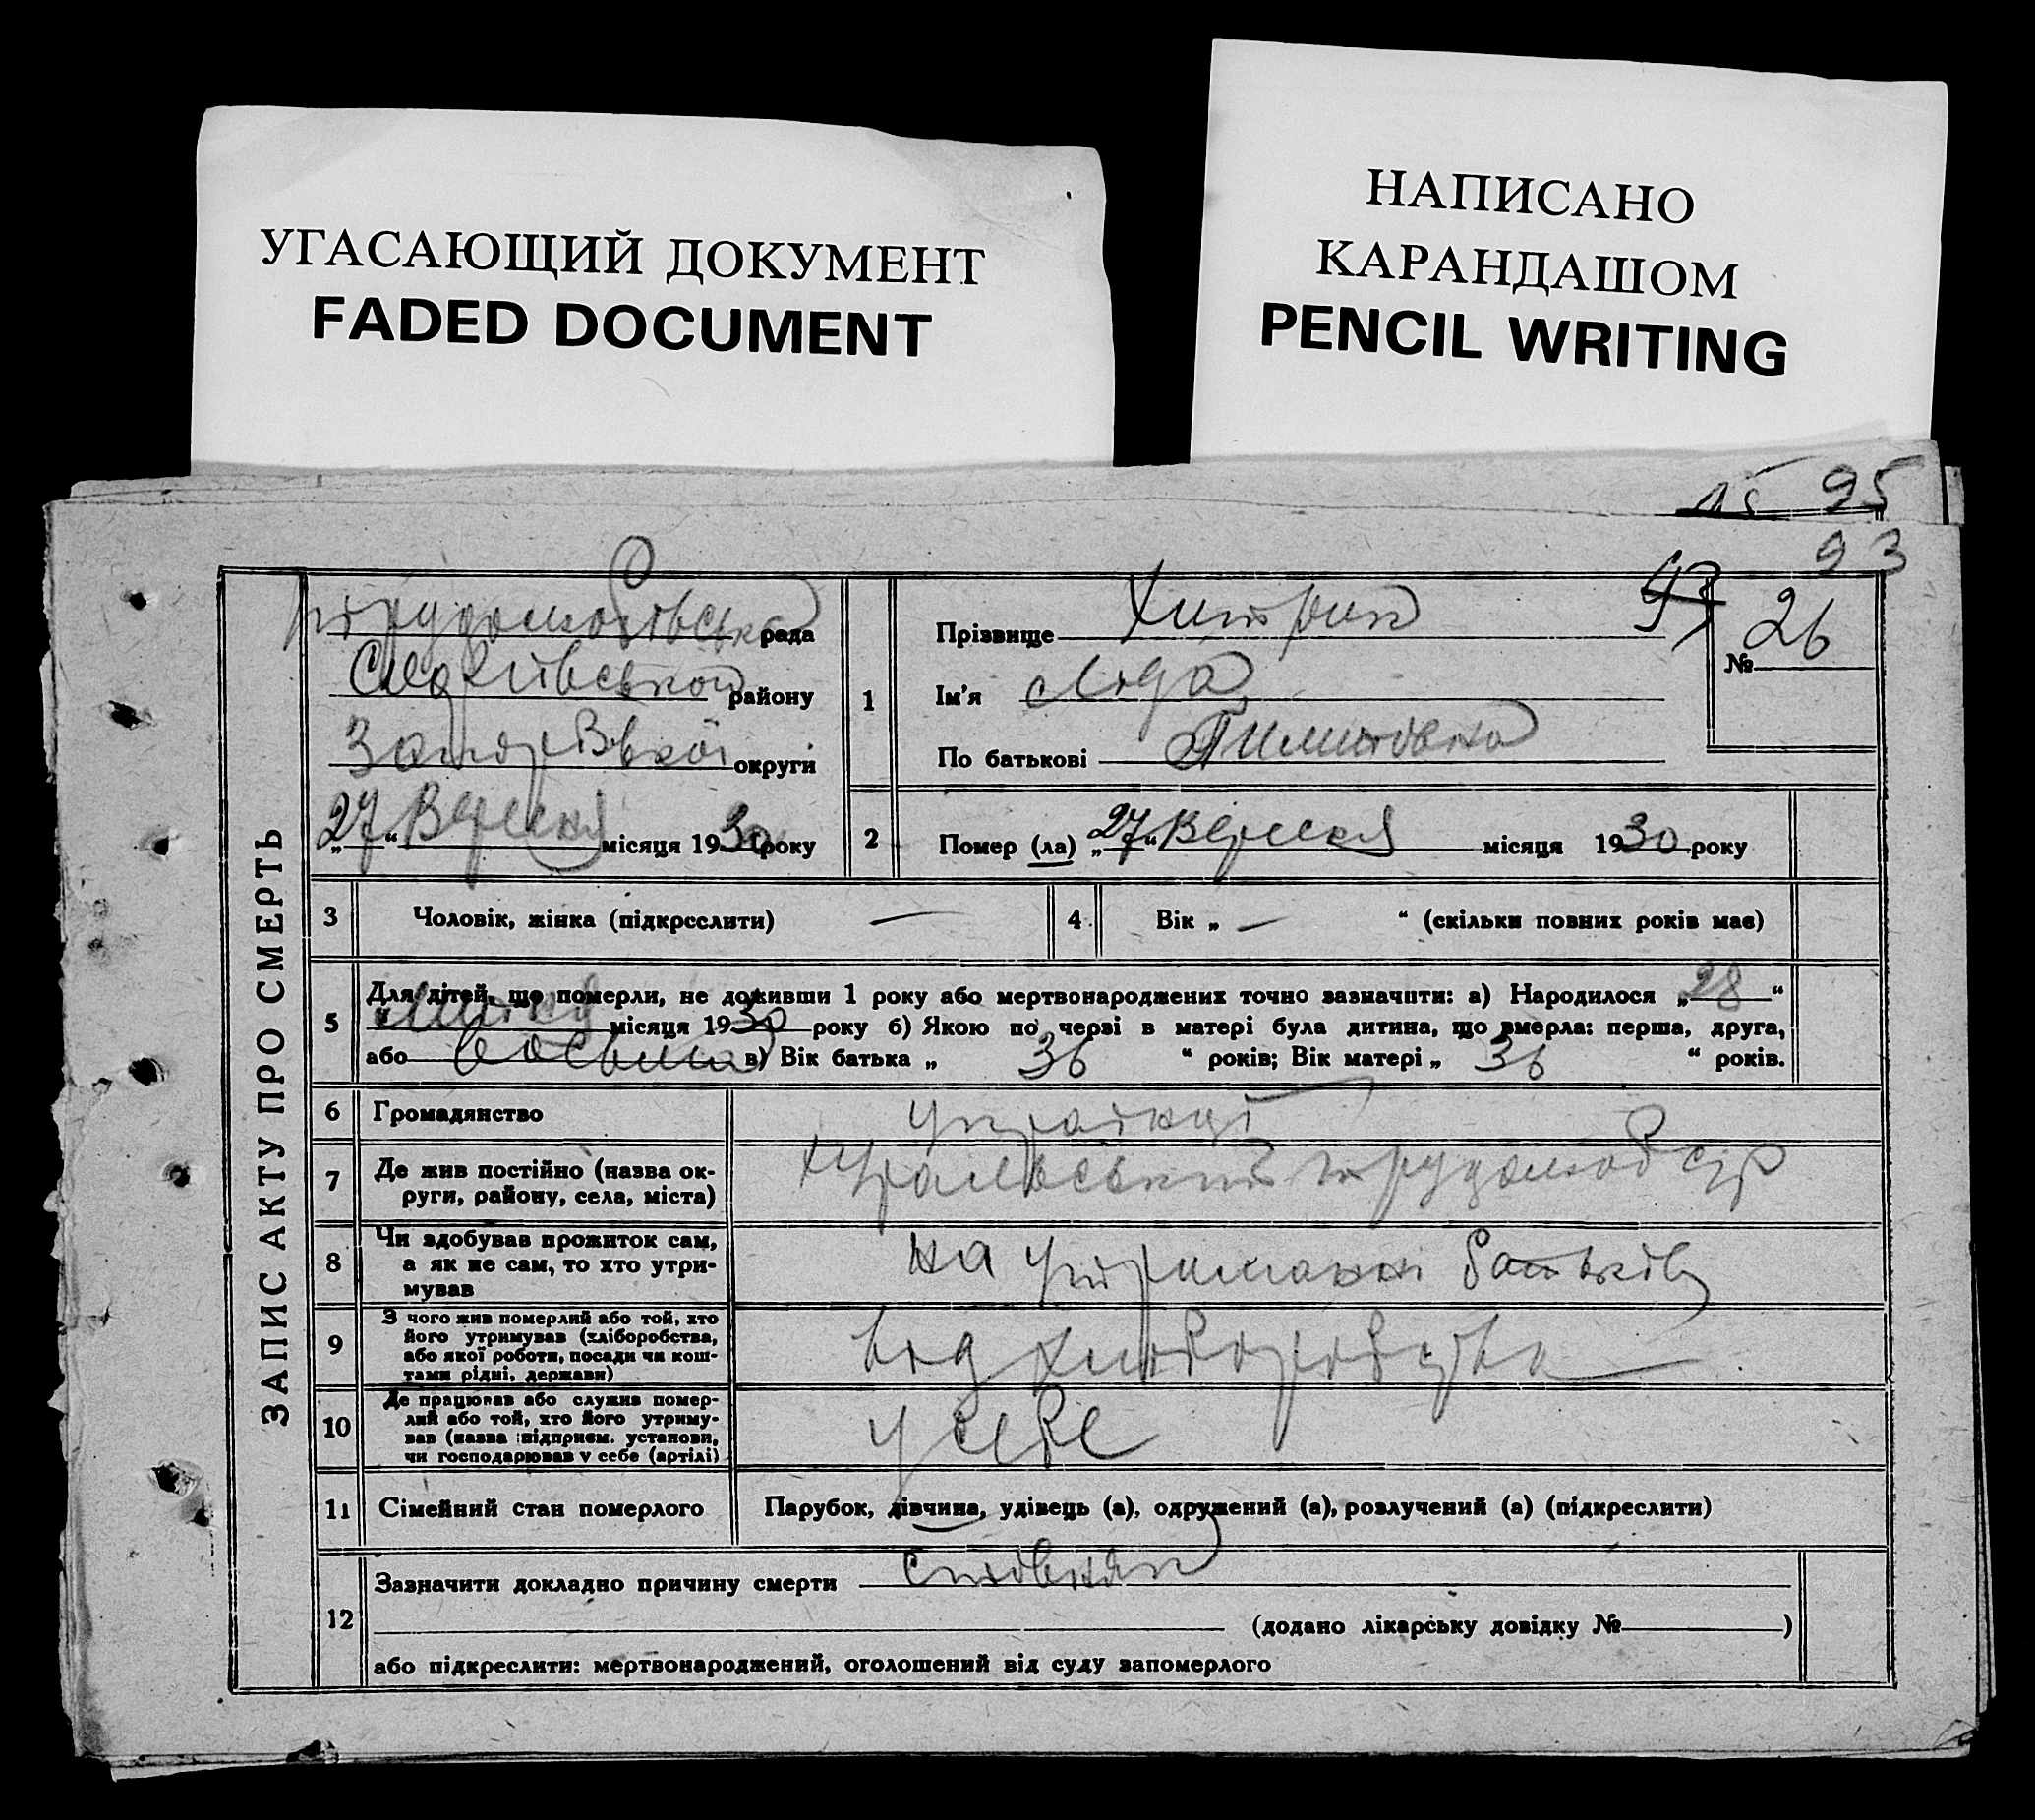 УГАСАЮЩИЙ ДОКУМЕНТ
FADED DOCUMENT
НАПИСАНО
КАРАНДАШОМ
PENCIL WRITING
15 95
93
93
ЗАПИС АКТУ ПРО СМЕРТЬ
рада
району
округи
„27“ Вересня місяця 1930 року
1
Прізвище Хитрик
Ім'я Ліда
По батькові
№ 26
2
Помер (ла) „27“ Вересня місяця 1930 року
3 Чоловік, жінка (підкреслити) —
4 Вік „ — “ (скільки повних років має)
5
Для дітей, що померли, не доживши 1 року або мертвонароджених точно зазначити: а) Народилося „28“
місяця 1930 року б) Якою по черзі в матері була дитина, що вмерла: перша, друга,
або восьма в) Вік батька „ 36 “ років; Вік матері „ 36 “ років.
6 Громадянство
7 Де жив постійно (назва ок-
руги, району, села, міста)
8 Чи здобував прожиток сам,
а як не сам, то хто утри-
мував
на утриманні батьків
9 З чого жив померлий або той, хто
його утримував (хліборобства,
або якої роботи, посади чи кош-
тами рідні, держави)
від хліборобства
10 Де працював або служив помер-
лий або той, хто його утриму-
вав (назва підприєм. установи,
чи господарював у себе (артілі)
у себе
11 Сімейний стан померлого
Парубок, дівчина, удівець (а), одружений (а), розлучений (а) (підкреслити)
12
Зазначити докладно причину смерти
(додано лікарську довідку № )
або підкреслити: мертвонароджений, оголошений від суду запомерлого